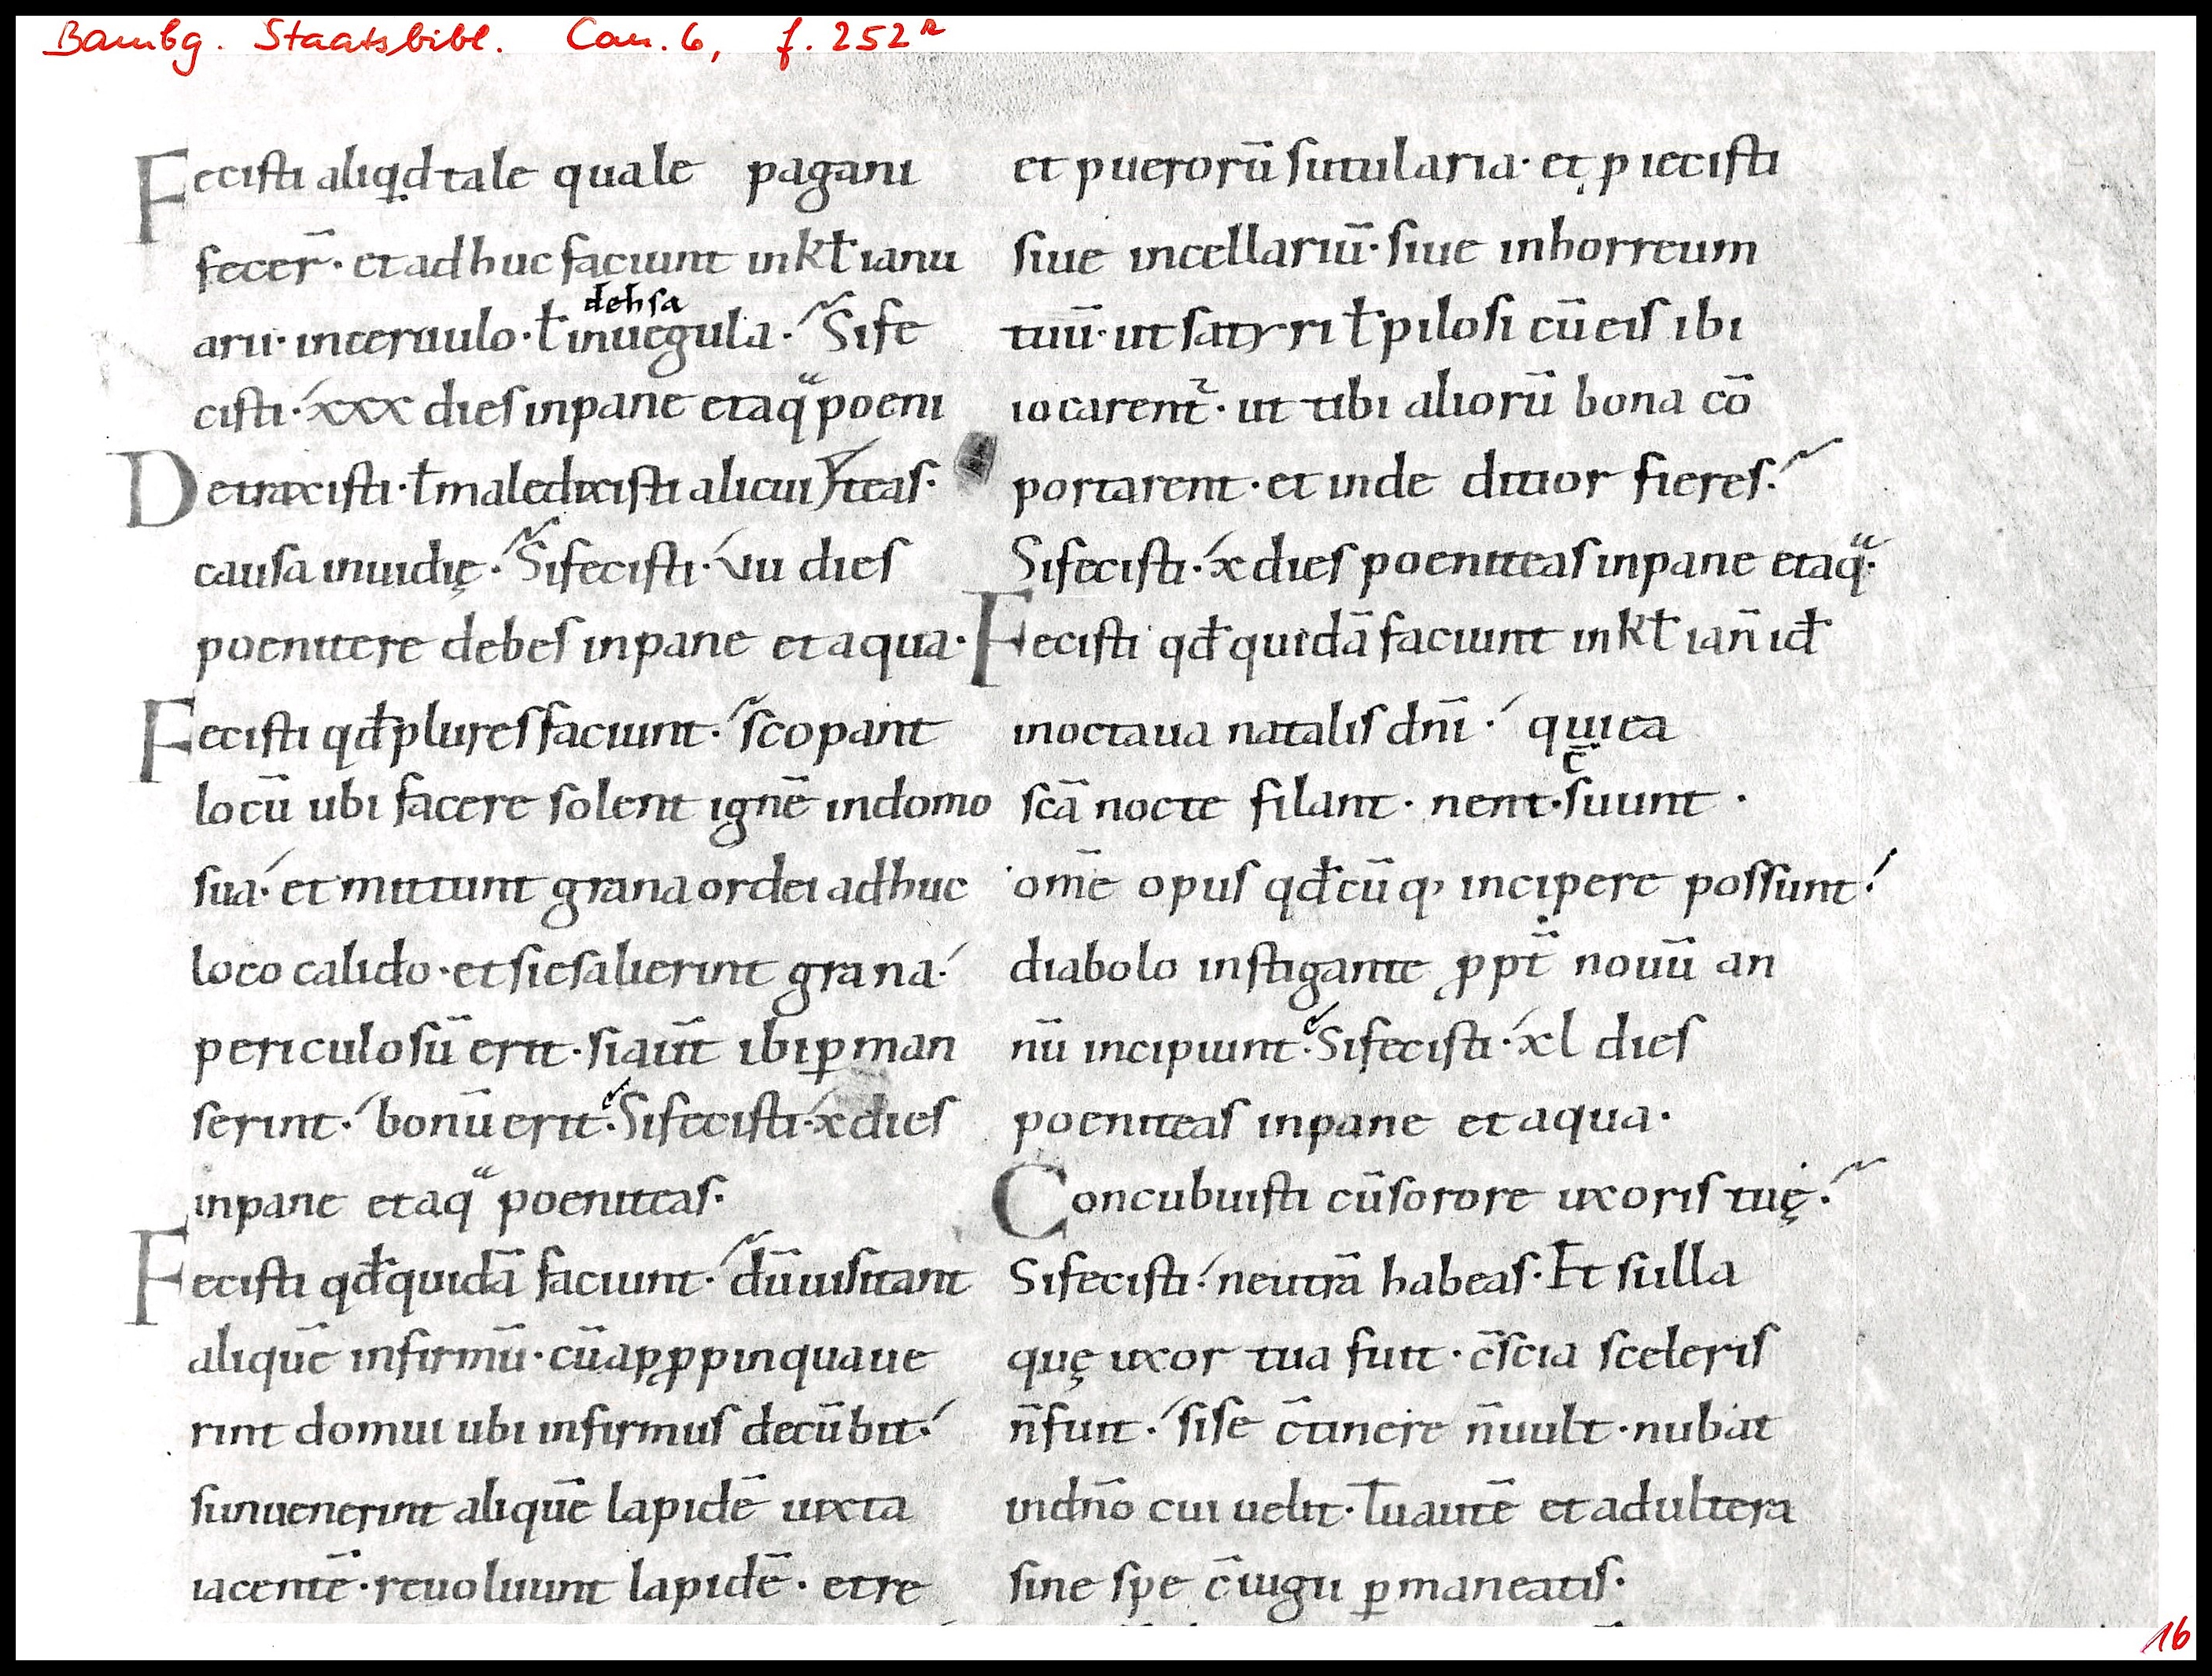 Bambg. Staatsbibl. Can. 6, f. 252ᴿ
Fecisti aliqd tale quale pagani
fecer̄· et adhuc faciunt in kł ianu
dehsa
arii· in ceruulo· ł in uegula· Si fe
cisti· xxx dies in pane et aqͣ poeni
Detraxisti· ł maledixisti alicui teas·
causa inuidię· Si fecisti· VII dies
poenitere debes in pane et aqua·
Fecisti qđ plures faciunt· scopant
locū ubi facere solent ignē in domo
sua· et mittunt grana ordei adhuc
loco calido· et si exalierint grana·
periculosū erit· si aūt ibi ꝑman
serint· bonū erit· Si fecisti· x dies
in pane et aqͣ poeniteas·
Fecisti qđ quidā faciunt· dū uisitant
aliquē infirmū· cū apꝓpinquaue
rint domui ubi infirmus decūbit·
si inuenerint aliquē lapidē iuxta
iacentē· reuoluunt lapidē· et re
et puerorū sutularia· et p iecisti
siue in cellariū· siue in horreum
tuū· ut satyri ł pilosi cū eis ibi
iocarent᷑· ut tibi aliorū bona cō
portarent· et inde ditior fieres·
Si fecisti· x dies poeniteas in pane et aqͣ·
Fecisti qđ quidā faciunt in kł ian̄ id
in octaua natalis dn̄i· qui ea
c̄
scā nocte filant· nent· suunt·
om̄e opus qđcūq, incipere possunt·
diabolo instigante ꝓpt̄ nouū an
nū incipiunt· Si fecisti· xl dies
poeniteas in pane et aqua·
Concubuisti cū sorore uxoris tuę·
Si fecisti· neutrā habeas· Et si illa
quę uxor tua fuit· c̄scia sceleris
n̄ fuit· si se c̄tinere n̄ uult· nubat
in dn̄o cui uelit· Tu autē et adultera
sine spe c̄iugii ꝑmaneatis·
16